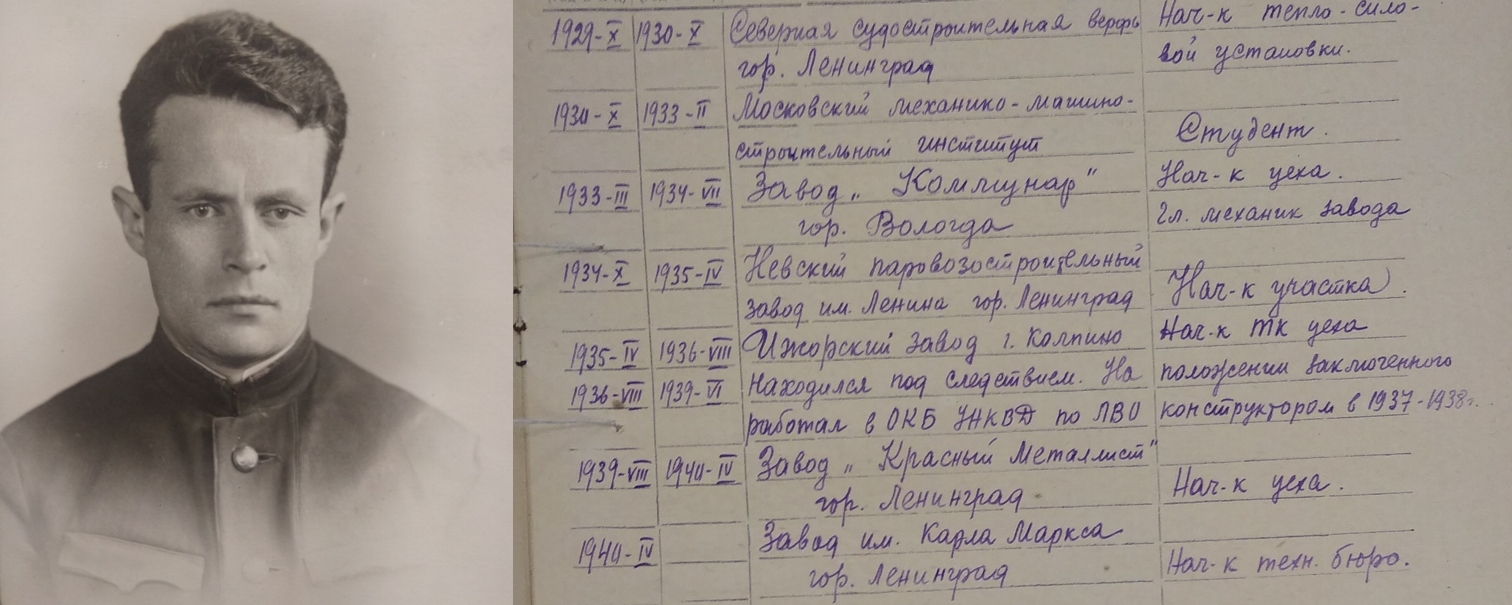 1929-X 1930-X Северная судостроительная верфь Нач-к тепло-сило-
гор. Ленинград вой установки.
1930-X 1933-II Московский механико-машино-
строительный институт Студент.
1933-III 1934-VII Завод „Коммунар" Нач-к цеха.
гор. Вологда Гл. механик завода
1934-X 1935-IV Невский паровозостроительный
завод им. Ленина гор. Ленинград Нач-к участка.
1935-IV 1936-VIII Ижорский завод г. Колпино Нач-к ТК цеха
1936-VIII 1939-VI Находился под следствием. На положении заключенного
работал в ОКБ УНКВД по ЛВО конструктором в 1937-1938г.
1939-VIII 1940-IV Завод „Красный Металлист"
гор. Ленинград Нач-к цеха.
1940-IV Завод им. Карла Маркса
гор. Ленинград Нач-к техн. бюро.